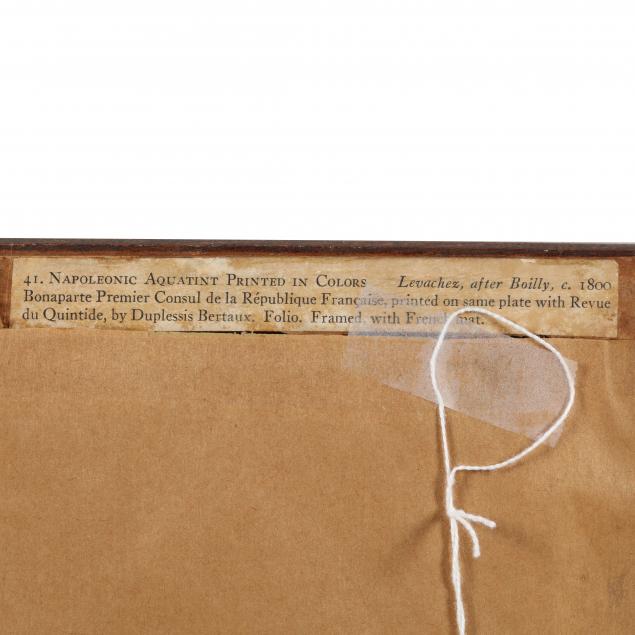 41. Napoleonic Aquatint Printed in Colors Levachez, after Boilly, c. 1800
Bonaparte Premier Consul de la République Française, printed on same plate with Revue
du Quintide, by Duplessis Bertaux. Folio. Framed, with French mat.